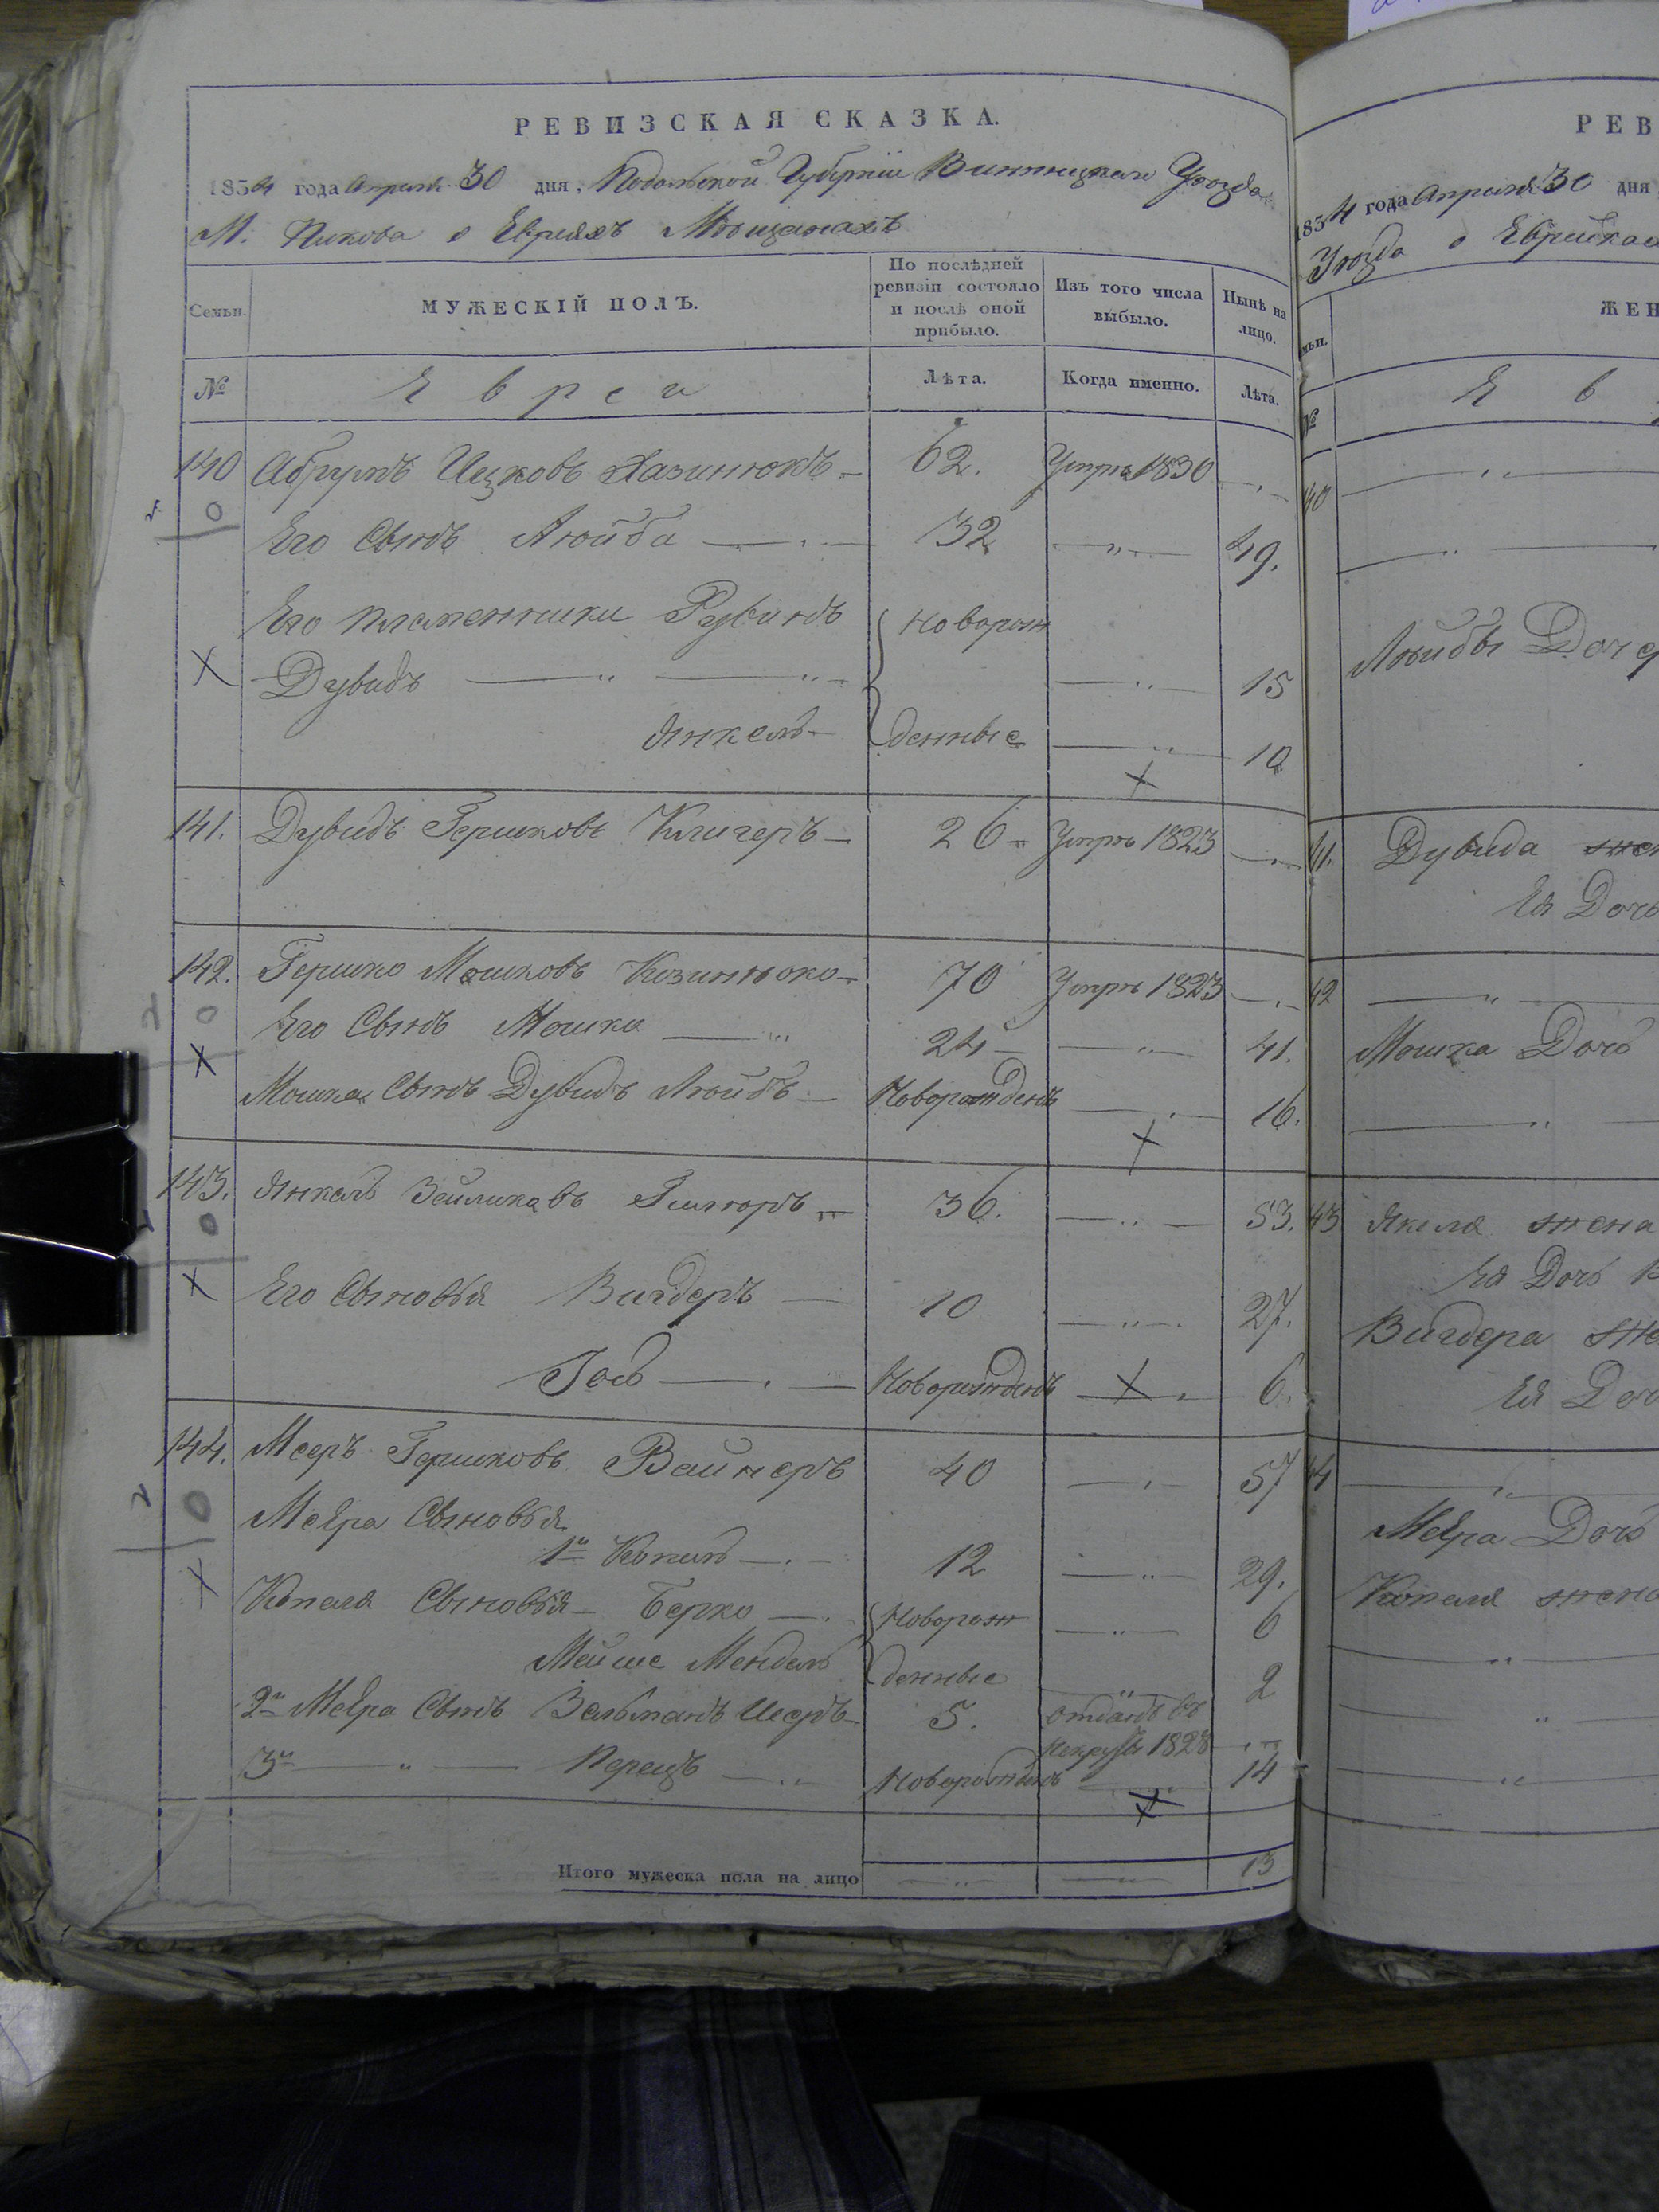 РЕВИЗСКАЯ СКАЗКА.
1834 года Апреля 30 дня, Подольской Губернии Винницкаго Уезда
М. Пикова о Евреяхъ Мещанахъ
Семьи.
МУЖЕСКІЙ ПОЛЪ.
По послѣдней ревизіи состояло и послѣ оной прибыло.
Изъ того числа выбыло.
Нынѣ на лицо.
№ Евреи Лѣта. Когда именно. Лѣта.
140 Абрумъ Ицковъ 62. Умръ 1830
Его Сынъ Лейба 32 49.
Его племенники Рувинъ новорож
Дувидъ 15
Янкель денные 10
141. Дувидъ Гершковъ Клигеръ 26 Умръ 1823
142. Гершко Мошковъ 70 Умръ 1823
Его Сынъ Мошко 24 41.
Мошка Сынъ Дувидъ Лейбъ Новорожденъ 16.
143. Янкель Зейликовъ 36. 53.
Его Сыновья Вигдеръ 10 27.
Іосъ Новорожденъ 6.
144. Мееръ Гершковъ Вайнеръ 40 57
Меера Сыновья
1й Копель 12 29.
Копеля Сыновья Берко Новорож 6
Мейше Мендель денные 2
2й Меера Сынъ Зельманъ 5. отданъ въ
рекруты 1828
3й Перецъ Новорожденъ 14
Итого мужеска пола на лицо 13
РЕВ
1834 года Апреля 30 дня
Уезда о Еврейска
ЖЕН
№ Ев
Лейбы Доче
41. Дувида жен
Ея Дочь
42
Мошка Дочь
43 Якеля жена
Ея Дочь
Вигдера же
Ея Доч
44
Меера Дочь
Копеля жена